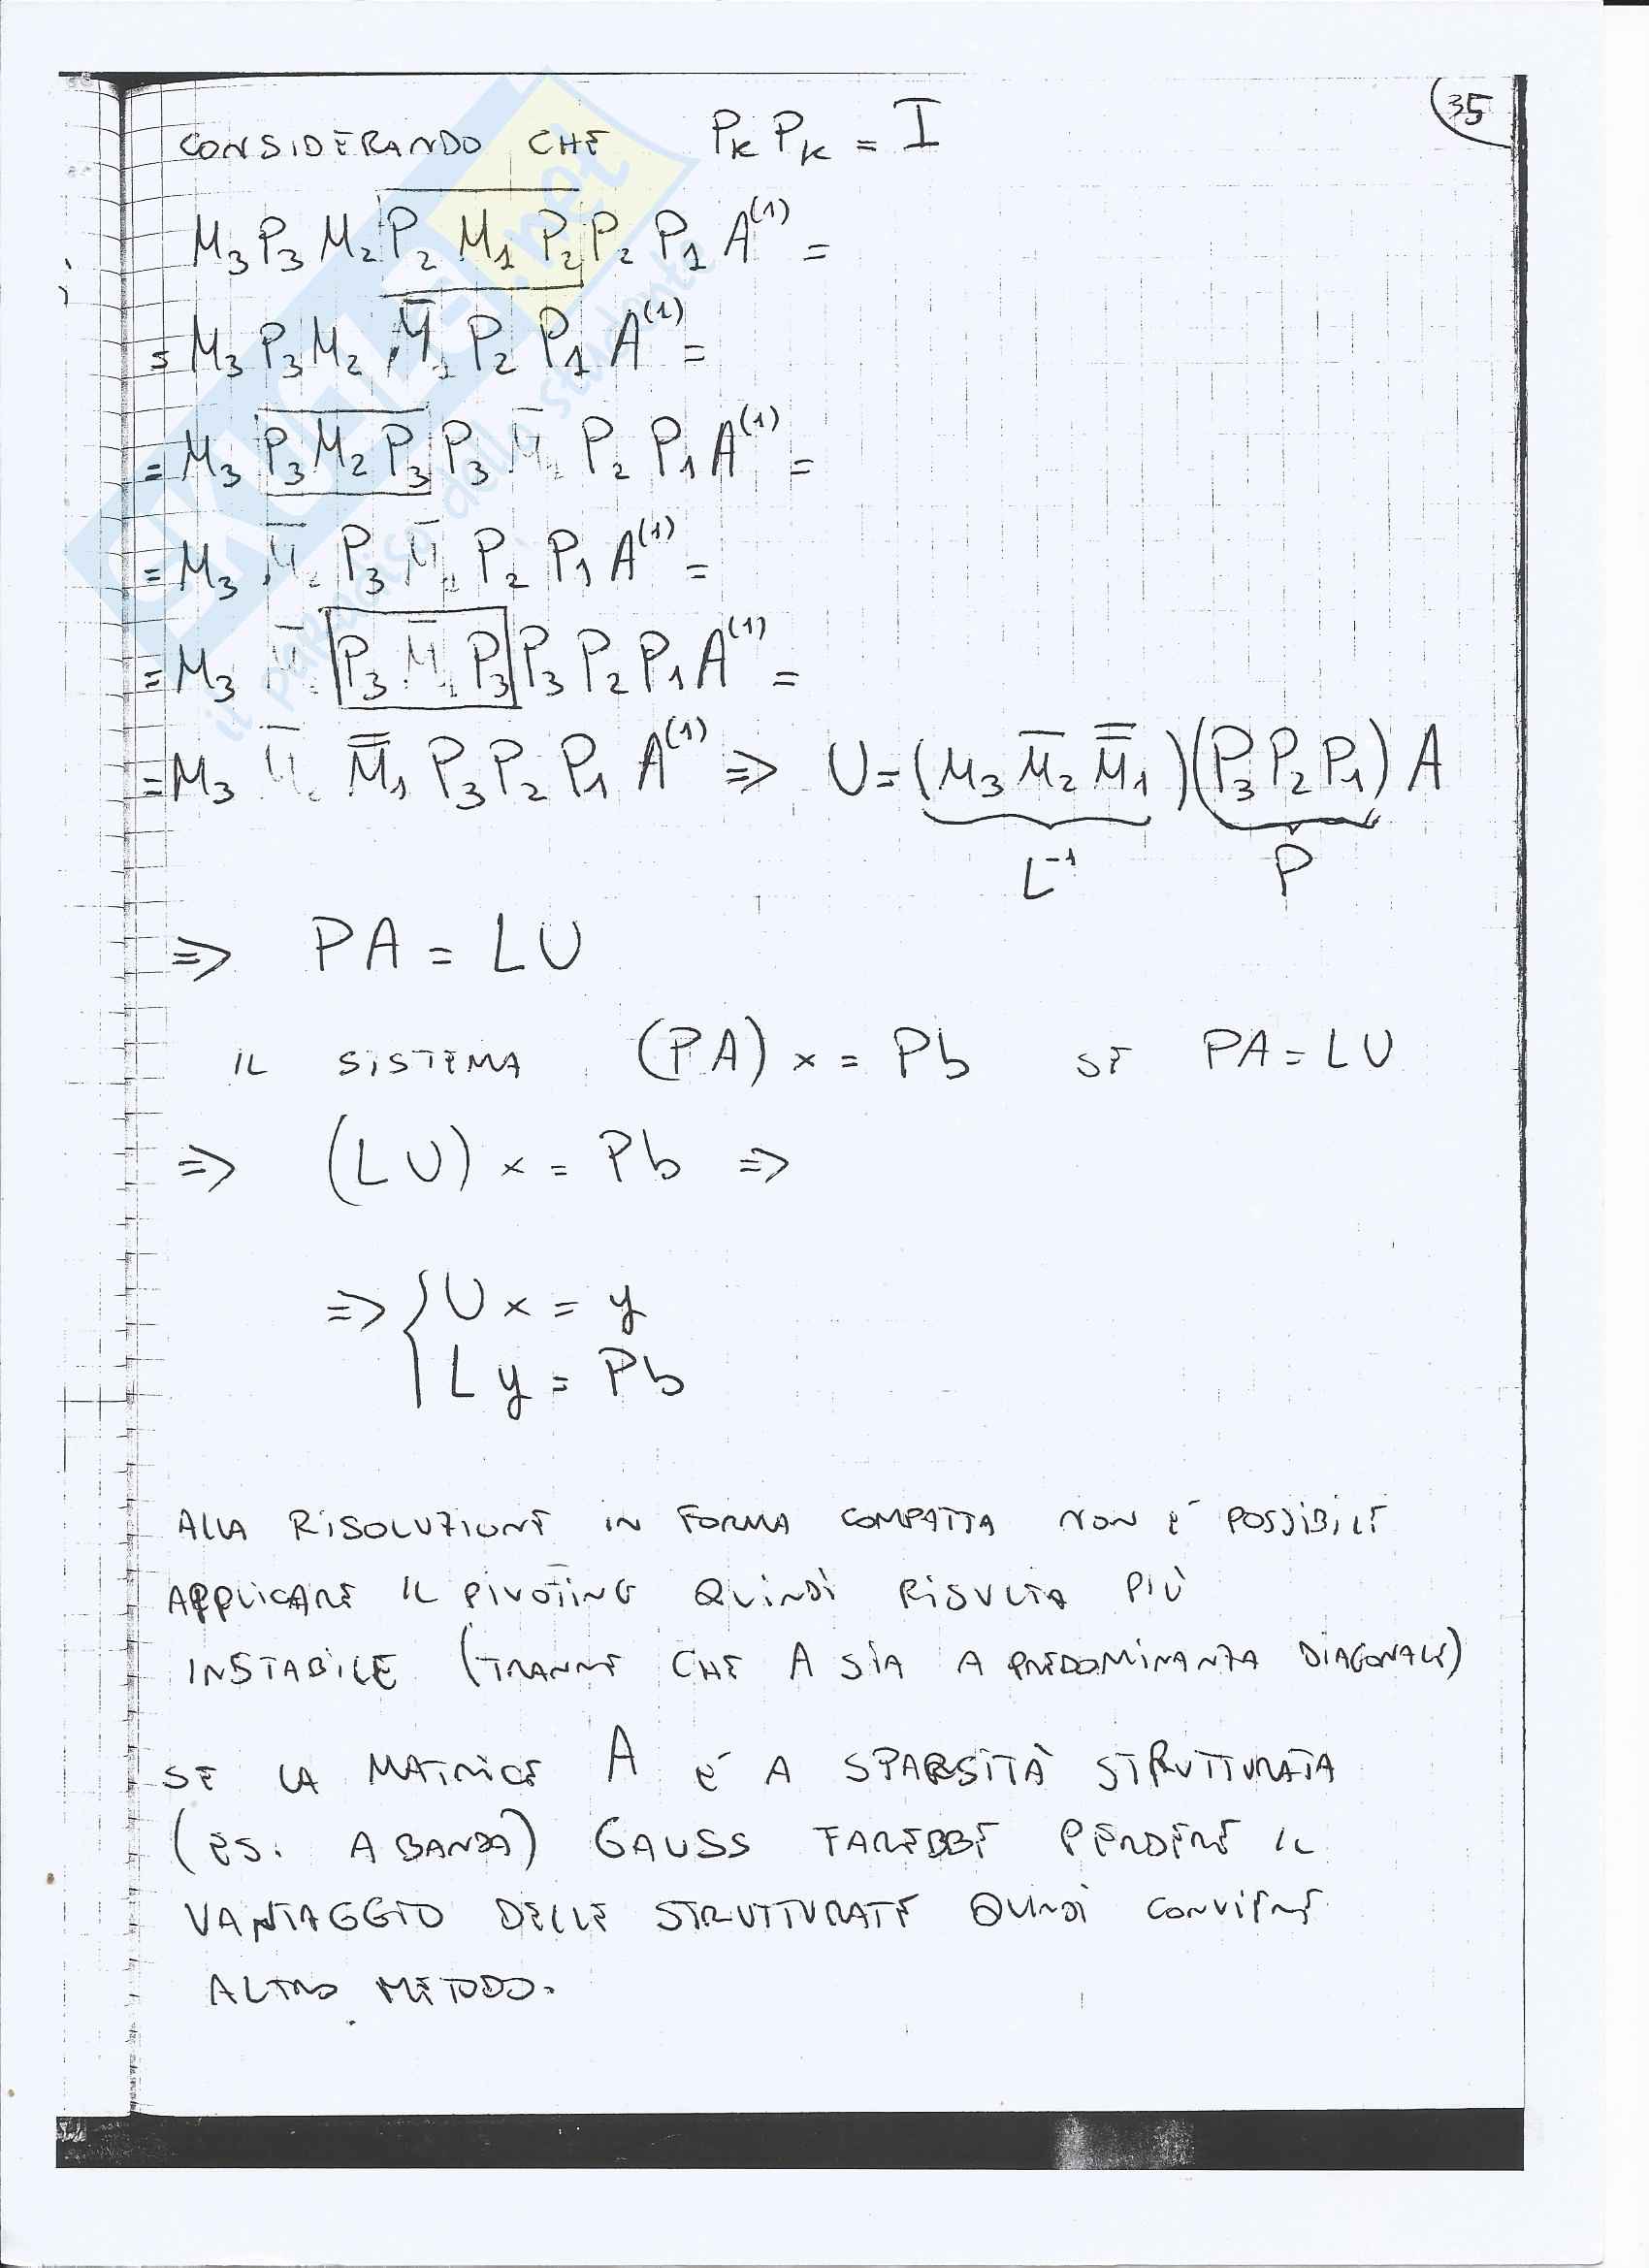 35
CONSIDERANDO CHE PₖPₖ = I
M₃P₃M₂P₂M₁P₂P₂P₁A⁽¹⁾ =
= M₃P₃M₂M̅₁P₂P₁A⁽¹⁾ =
= M₃P₃M₂P₃P₃M̅₁P₂P₁A⁽¹⁾ =
= M₃M̅₂P₃M̅₁P₂P₁A⁽¹⁾ =
= M₃M̅₂P₃M̅₁P₃P₃P₂P₁A⁽¹⁾ =
= M₃M̅₂M̿₁P₃P₂P₁A⁽¹⁾ ⇒ U = (M₃M̅₂M̿₁)(P₃P₂P₁)A
L⁻¹ P
⇒ PA = LU
IL SISTEMA (PA)x = Pb SE PA = LU
⇒ (LU)x = Pb ⇒
⇒ { Ux = y
Ly = Pb
ALLA RISOLUZIONE IN FORMA COMPATTA NON É POSSIBILE
APPLICARE IL PIVOTING QUINDI RISULTA PIÙ
INSTABILE (TRANNE CHE A SIA A PREDOMINANZA DIAGONALE)
SE LA MATRICE A É A SPARSITÀ STRUTTURATA
(ES. A BANDA) GAUSS FAREBBE PERDERE IL
VANTAGGIO DELLE STRUTTURATE QUINDI CONVIENE
ALTRO METODO.
il paradiso dello studente